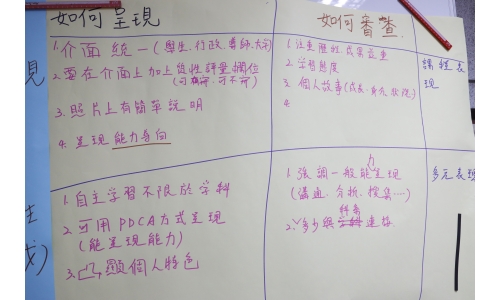 如何呈現
如何審查
1.介面統一(學生、行政、導師、大学)
2.要在介面上加上質性評量欄位
(可有可無、可不可)
3.照片上有簡單說明
4.呈現能力導向
1.注重歷的成果並重
2.学習態度
3.個人故事(成長、身分、狀況)
4
課程表
現
見
1.自主学習不限於学科
2.可用PDCA方式呈現
(能呈現能力)
3.顯個人特色
1.強調一般能力呈現
(溝通、分析、搜集…)
2.多少與科系連結
多元表現